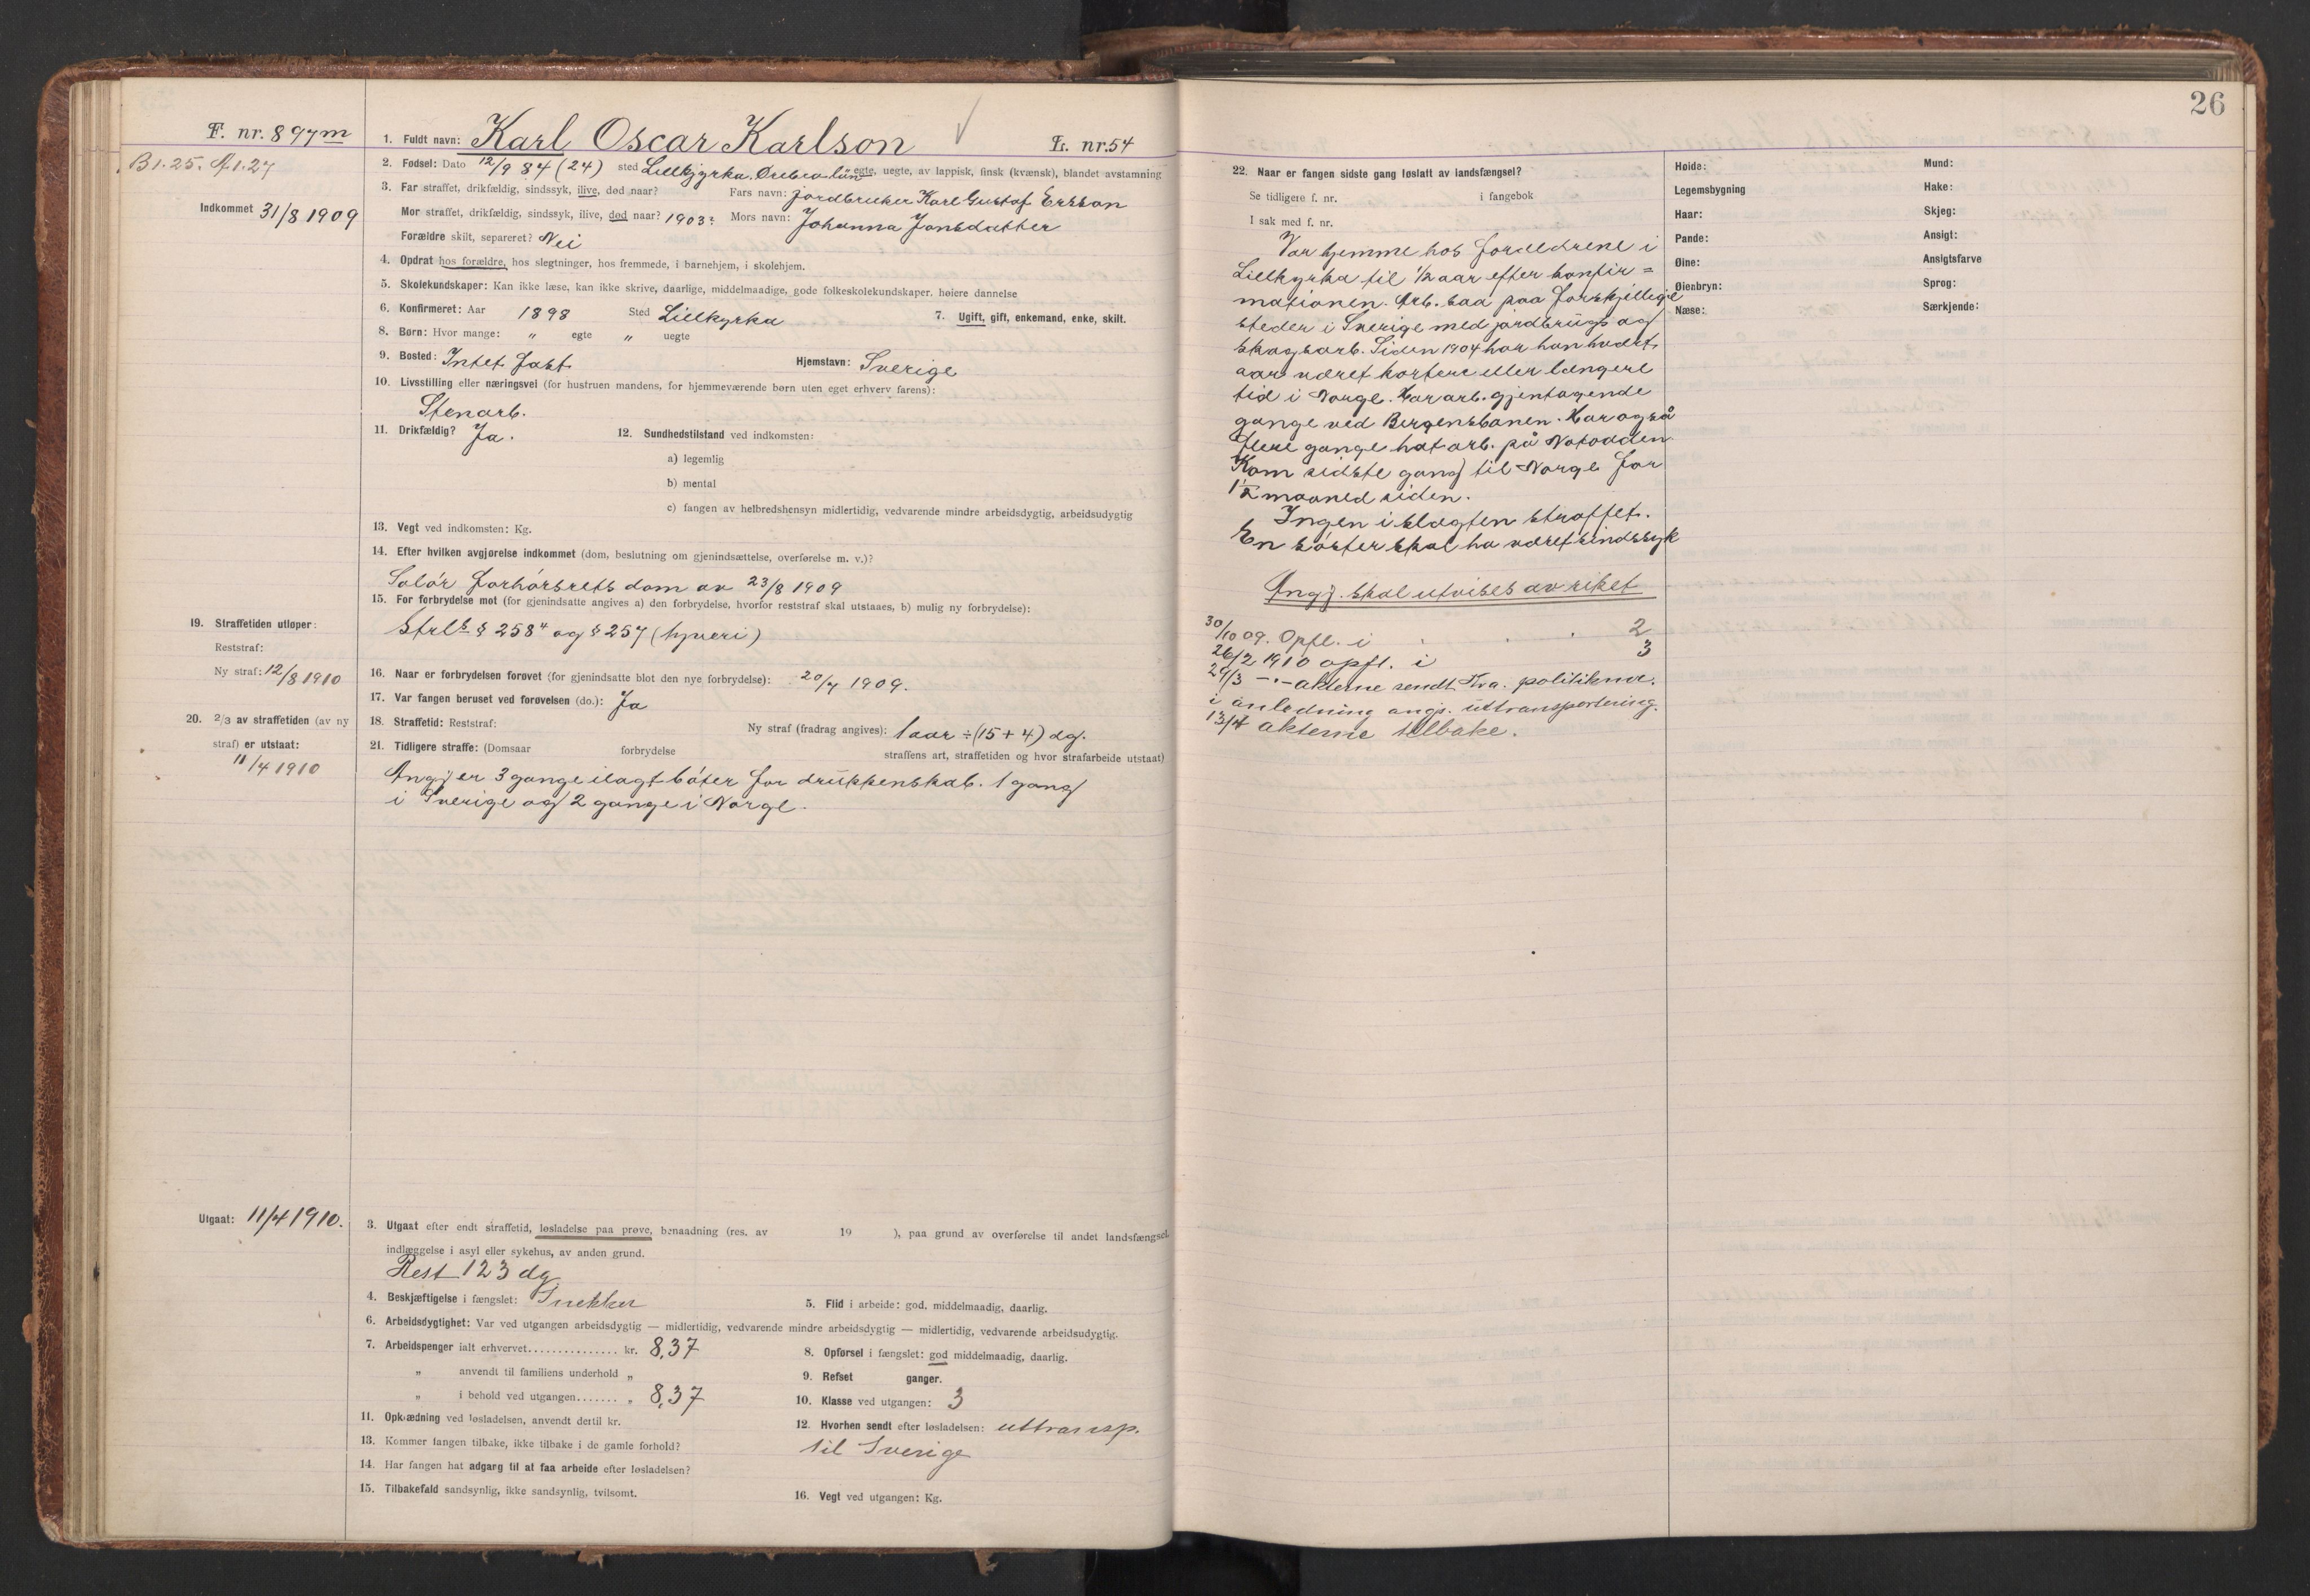 F. nr. 897m
B1.25. A1.27
Indkommet 31/8 1909
1. Fuldt navn: Karl Oscar Karlson Fr. nr. 54
2. Fødsel: Dato 12/9 84 (24) sted Lillkjyrka. Örebro län egte, uegte, av lappisk, finsk (kvænsk), blandet avstamning
3. Far straffet, drikfældig, sindssyk, ilive, død naar? Fars navn: Jordbruker Karl Gustaf Ersson
Mor straffet, drikfældig, sindssyk, ilive, død naar? 1903: Mors navn: Johanna Jansdatter
Forældre skilt, separeret? Nei
4. Opdrat hos forældre, hos slegtninger, hos fremmede, i barnehjem, i skolehjem.
5. Skolekundskaper: Kan ikke læse, kan ikke skrive, daarlige, middelmaadige, gode folkeskolekundskaper. høiere dannelse
6. Konfirmeret: Aar 1898 Sted Lillkyrka 7. Ugift, gift, enkemand, enke, skilt.
8. Børn: Hvor mange: „ egte „ uegte
9. Bosted: Intet fast Hjemstavn: Sverige
10. Livsstilling eller næringsvei (for hustruen mandens, for hjemmeværende børn uten eget erhverv farens):
Stenarb.
11. Drikfældig? Ja. 12. Sundhedstilstand ved indkomsten:
a) legemlig
b) mental
c) fangen av helbredshensyn midlertidig, vedvarende mindre arbeidsdygtig, arbeidsudygtig
13. Vegt ved indkomsten: Kg.
14. Efter hvilken avgjørelse indkommet (dom, beslutning om gjenindsættelse, overførelse m. v.)?
Solør forhørsretts dom av 23/8 1909
15. For forbrydelse mot (for gjenindsatte angives a) den forbrydelse, hvorfor reststraf skal utstaaes, b) mulig ny forbrydelse):
Strls § 258⁴ og § 257 (tyveri)
19. Straffetiden utløper:
Reststraf:
Ny straf: 12/8 1910
16. Naar er forbrydelsen forøvet (for gjenindsatte blot den nye forbrydelse): 20/7 1909.
17. Var fangen beruset ved forøvelsen (do.): Ja
20. 2/3 av straffetiden (av ny
straf) er utstaat:
11/4 1910
18. Straffetid: Reststraf: Ny straf (fradrag angives): 1 aar ÷ (15 + 4) dg.
21. Tidligere straffe: (Domsaar forbrydelse straffens art, straffetiden og hvor strafarbeide utstaat)
Angj er 3 gange ilagt bøter for drukkenskab. 1 gang
i Sverige og 2 gange i Norge.
Utgaat: 11/4 1910.
3. Utgaat efter endt straffetid, løsladelse paa prøve, benaadning (res. av 19 ), paa grund av overførelse til andet landsfængsel,
indlæggelse i asyl eller sykehus, av anden grund.
Rest 123 dg
4. Beskjæftigelse i fængslet: Snekker 5. Flid i arbeide: god, middelmaadig, daarlig.
6. Arbeidsdygtighet: Var ved utgangen arbeidsdygtig — midlertidig, vedvarende mindre arbeidsdygtig — midlertidig, vedvarende arbeidsudygtig.
7. Arbeidspenger ialt erhvervet............... kr. 8,37 8. Opførsel i fængslet: god middelmaadig, daarlig.
„ anvendt til familiens underhold „ 9. Refset ganger.
„ i behold ved utgangen....... „ 8,37 10. Klasse ved utgangen: 3
11. Opklædning ved løsladelsen, anvendt dertil kr. 12. Hvorhen sendt efter løsladelsen: uttransp.
13. Kommer fangen tilbake, ikke tilbake i de gamle forhold? til Sverige
14. Har fangen hat adgang til at faa arbeide efter løsladelsen?
15. Tilbakefald sandsynlig, ikke sandsynlig, tvilsomt. 16. Vegt ved utgangen: Kg.
26
22. Naar er fangen sidste gang løslatt av landsfængsel?
Se tidligere f. nr. i fangebok
I sak med f. nr.
Var hjemme hos foreldrene i
Lillkyrka til 1/2 aar efter konfir=
mationen. Arb. saa paa forskjellige
steder i Sverige med jordbrugs og
skogsarb. Siden 1904 har han hvert
aar været kortere eller længere
tid i Norge. Har arb. gjentagende
gange ved Bergensbanen. Har også
flere gange hat arb. på Notodden.
Kom sidste gang til Norge for
1 1/2 maaned siden.
Ingen i slægten straffet.
En søster skal ha været sindssyk
Angj. skal utvises av riket
30/10 09. Opfl. i . . . 2
26/2 1910 opfl. i 3
29/3 —"— akterne sendt Kra. politikmr.
i anledning angs. uttransportering.
13/4 akterne tilbake.
Høide: Mund:
Legemsbygning Hake:
Haar: Skjeg:
Pande: Ansigt:
Øine: Ansigtsfarve
Øienbryn: Sprog:
Næse: Særkjende: